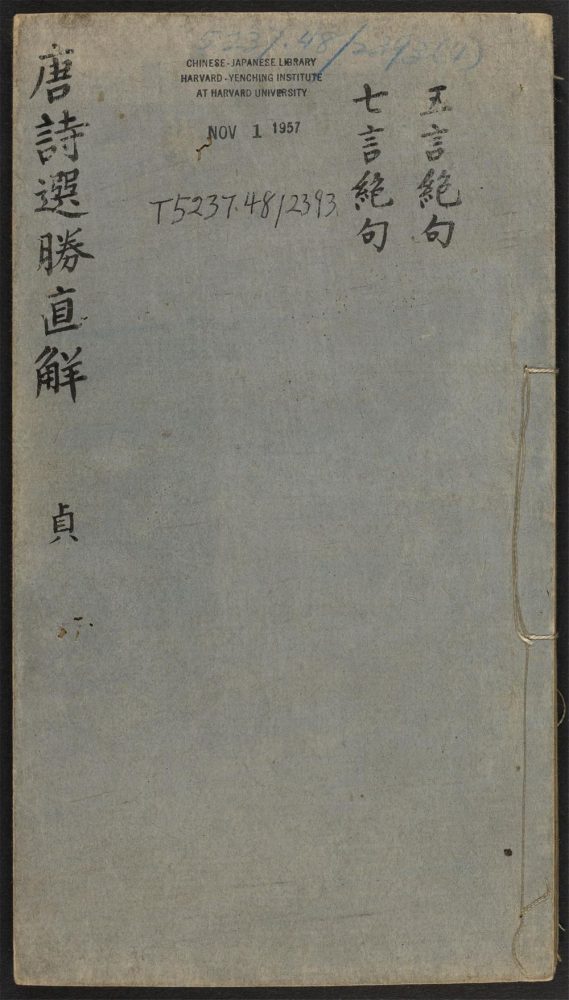 5237.48/2393(4)
CHINESE-JAPANESE LIBRARY
HARVARD-YENCHING INSTITUTE
AT HARVARD UNIVERSITY
NOV 1 1957
T5237.48/2393
五言絕句
七言絕句
唐詩選勝直解
貞